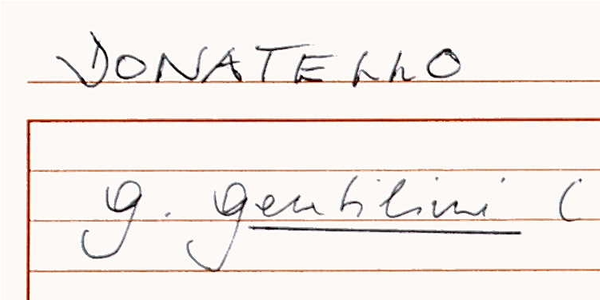 DONATELLO
G. Gentilini (